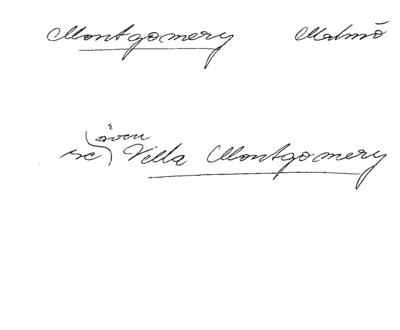 Montgomery Malmö
se även Villa Montgomery